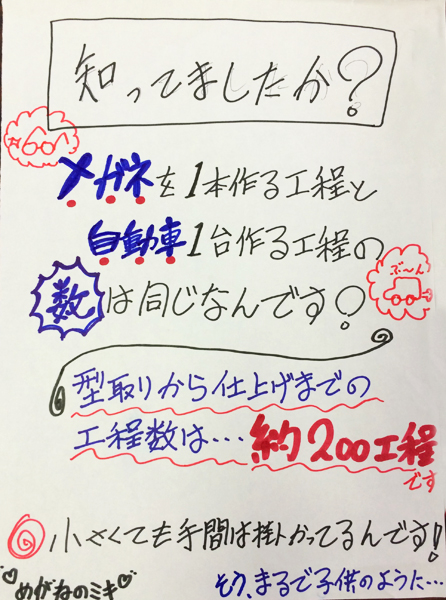 知ってましたか?
メガネを1本作る工程と
自動車1台作る工程の
ぶ〜ん
数は同じなんです!
型取りから仕上げまでの
工程数は…約200工程
です
小さくても手間は掛かってるんです!
めがねのミキ
そう、まるで子供のように…